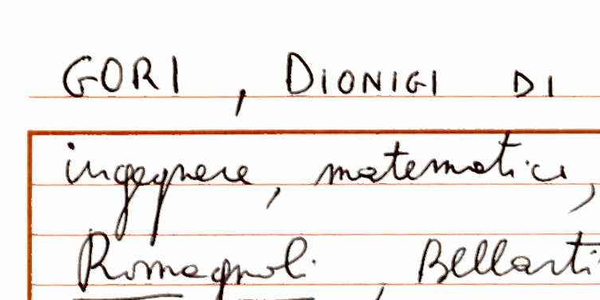 GORI, DIONIGI DI
ingegnere, matematico,
Romagnoli, Bellarti